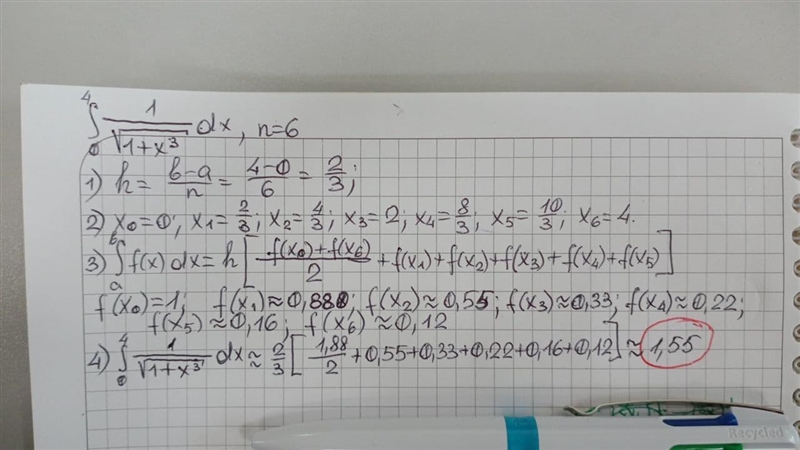 ∫₀⁴ 1/√(1+x³) dx, n=6
1) h = (b-a)/n = (4-0)/6 = 2/3;
2) x₀=0; x₁=2/3; x₂=4/3; x₃=2; x₄=8/3; x₅=10/3; x₆=4.
3) ∫ₐᵇ f(x) dx = h[(f(x₀)+f(x₆))/2 + f(x₁)+f(x₂)+f(x₃)+f(x₄)+f(x₅)]
f(x₀)=1; f(x₁)≈0,880; f(x₂)≈0,55; f(x₃)≈0,33; f(x₄)≈0,22;
f(x₅)≈0,16; f(x₆)≈0,12
4) ∫₀⁴ 1/√(1+x³) dx ≈ 2/3 [1,88/2 +0,55+0,33+0,22+0,16+0,12] ≈ 1,55
Recycled